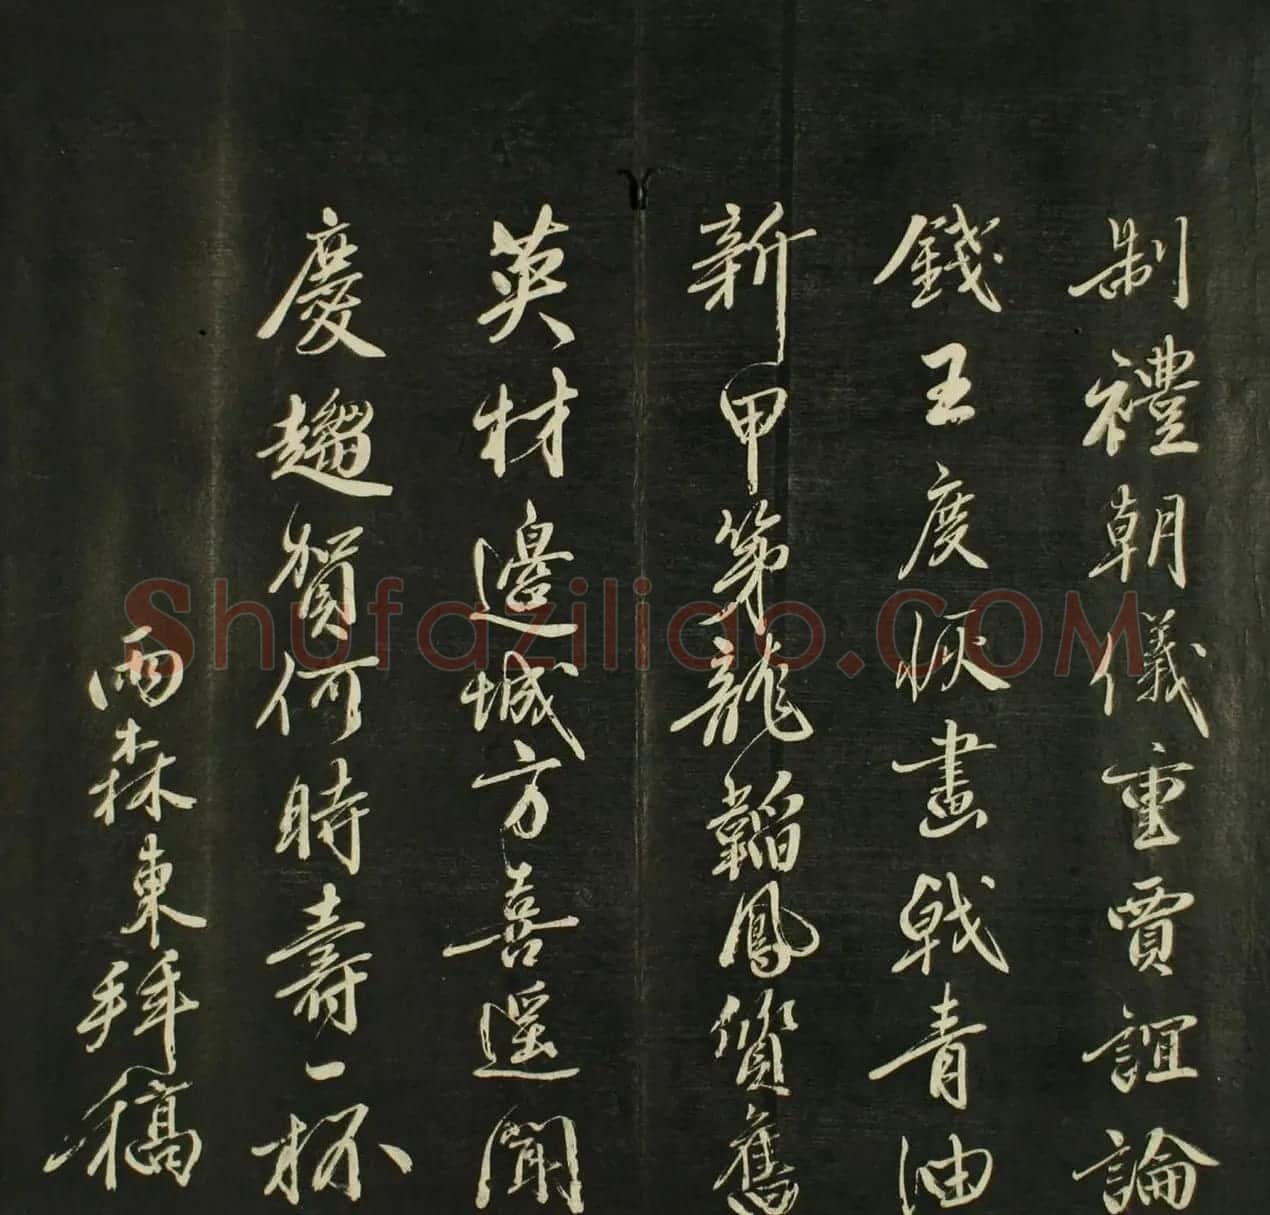 制禮朝儀重賈誼論
錢王度恢畫戟青油
新甲第龍韜鳳質舊
英材邊城方喜遥聞
慶趨賀何時壽一杯
雨森東拜稿
Shufaziliao.COM